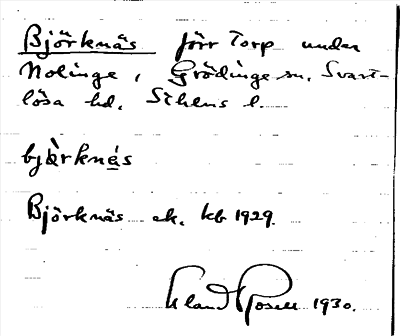 Björknäs förr Torp under
Nolinge, Grödinge sn. Svart-
lösa hd. Sthlms l.
bjö̀rknás
Björknäs ek. kb 1929.
Erland Rosell 1930.